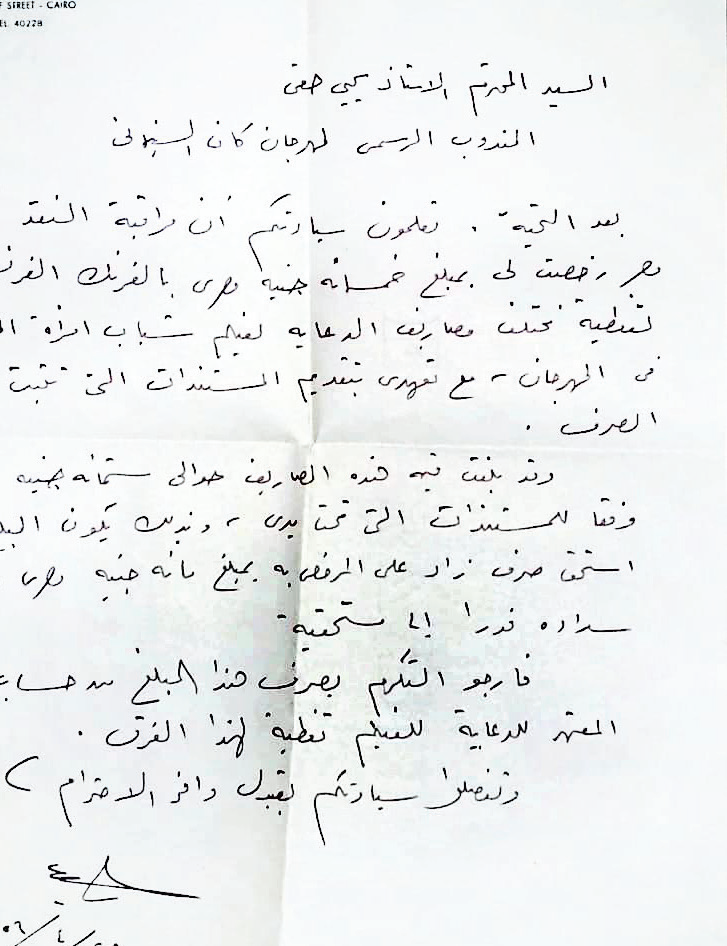 F STREET - CAIRO
EL. 40228
السيد المحترم الاستاذ يحيى حقى
المندوب الرسمى لمهرجان كان السينمائى
بعد التحية . تعلمون سيادتكم أن مراقبة النقد
مصر رخصت لى بمبلغ خمسمائه جنيه مصرى بالفرنك الفرنـ
لتغطية مختلف مصاريف الدعايه لفيلم شباب امرأة
فى المهرجان ، مع تعهدى بتقديم المستندات التى تثبت
الصرف .
وقد بلغت قيمة هذه المصاريف حوالى ستمائه جنيه
وفقا للمستندات التى تحت يدى ، وبذلك يكون المبلـ
استحق صرف زاد على المرخص به بمبلغ مائه جنيه مصرى
سداده فورا إلى مستحقيه
فأرجو التكرم بصرف هذا المبلغ من حساب
المعتمد للدعاية للفيلم تغطية لهذا الفرق .
وتفضلوا سيادتكم بقبول وافر الاحترام